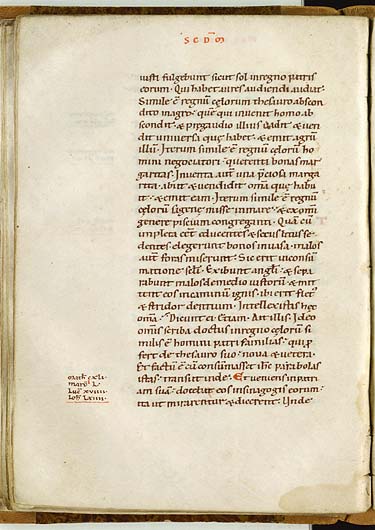 SCDM
iusti fulgebunt sicut sol in regno patris
eorum. Qui habet aures audiendi audiat.
Simile ē regnū cęlorum thesauro abscon
dito in agro. quē qui inuenit homo ab
scondit. & p̱ gaudio illius uadit & uen
dit uniuersa quę habet. & emit agrū
illū. Iterum simile ē regnū cęlorū ho
mini negociatori. querenti bonas mar
garitas. Inuenta aut̄ una p̄ciosa marga
rita. abiit & uendidit om̄a quę habu
it. & emit eam. Iterum simile ē regnū
cęlorū sagenę missę in mare. & ex om̄i
genere pisciū congreganti. Quā cū
impleta eēt educentes & secus litus se
dentes. elegerunt bonos in uasa. malos
aut̄ foras miserunt. Sic erit in consū
matione sc̄li. Exibunt angl̄i & sepa
rabunt malos de medio iustorū. & mit
tent eos in caminū ignis. ibi erit flet᷒
& stridor dentium. Intellexistis hęc
om̄a. Dicunt ei. Etiam. Ait illis. Ideo
om̄is scriba doctus in regno cęlorū si
milis ē homini patri familias. qui p̱
fert de thesauro suo noua & uetera.
Et factū ē cū consumasset ih̄c parabolas
istas. transiit inde. Et ueniens in patri
am suā. docebat eos in sinagogis eorum.
ita ut mirarentur & dicerent. Unde
math̄ cxli
marc̄ L
Luc̄ xviiii
Ioh̄ Lviiii